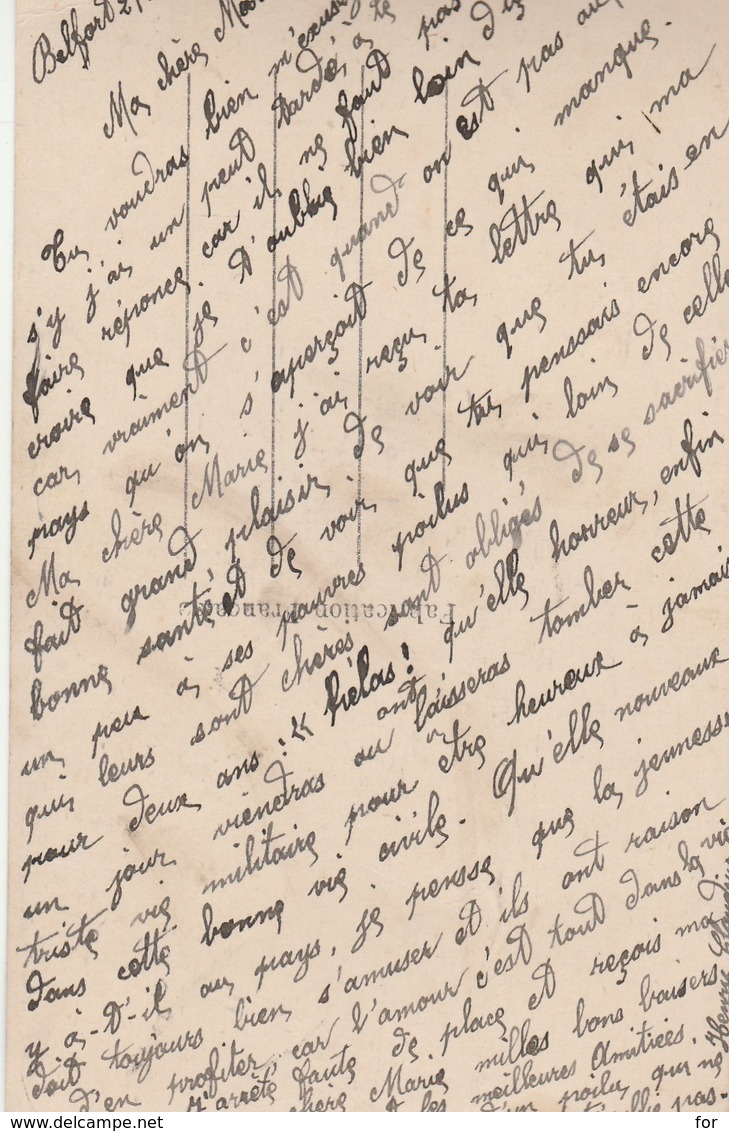 Belfort
Ma chère
Tu voudras bien m'excuse
s'y j'ai un peut tardé à te
faire réponce car il ne faut pas
croire que je t'oublie bien loin
car vraiment c'est quand on est pas au
pays qu'on s'aperçoit de ce qui manque.
Ma chère Marie j'ai reçu ta lettre qui ma
fait grand plaisir de voir que tu étais en
bonne santé et de voir que tu penssais encore
un peu à ses pauvres poilus qui loin de celle
qui leurs sont chères sont obligés de se sacrifier
pour deux ans : « hélas! qu'elle horreur, enfin
un jour viendras ont on laisseras tomber cette
triste vie militaire pour être heureux à jamais
dans cette bonne vie civile. Qu'elle nouveaux
y à-t-il au pays, je pensse que la jeunesse
doit toujours bien s'amuser et ils ont raison
d'en profiter car l'amour c'est tout dans la vie
m'arrête faute de place et reçois ma
chère Marie milles bons baisers
les meilleures Amitiées.
d'un poilu qui ne
pas.
Henry
Fabrication Française
for